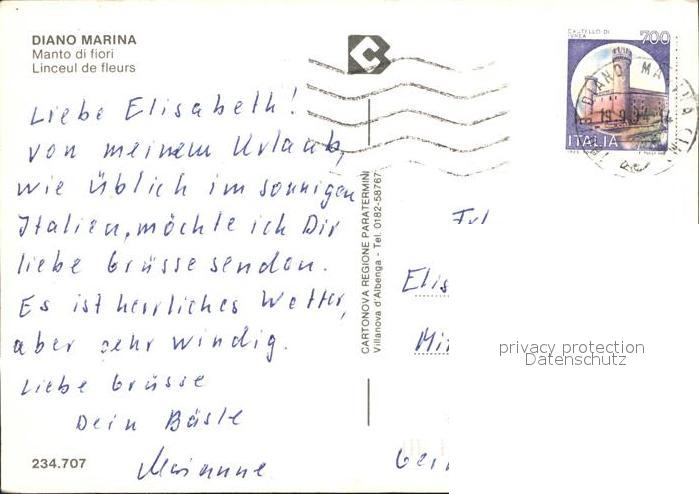 DIANO MARINA
Manto di fiori
Linceul de fleurs
CASTELLO DI
IVREA
700
ITALIA
DIANO MA
19.9.94
Liebe Elisabeth!
von meinem Urlaub,
wie üblich im sonnigen
Italien, möchte ich Dir
liebe Grüsse senden.
Es ist herrliches Wetter,
aber sehr windig.
Liebe Grüsse
Dein Bäsle
Marianne
234.707
CARTONOVA REGIONE PARATERMINI
Villanova d'Albenga - Tel. 0182-58767
Elis
privacy protection
Datenschutz